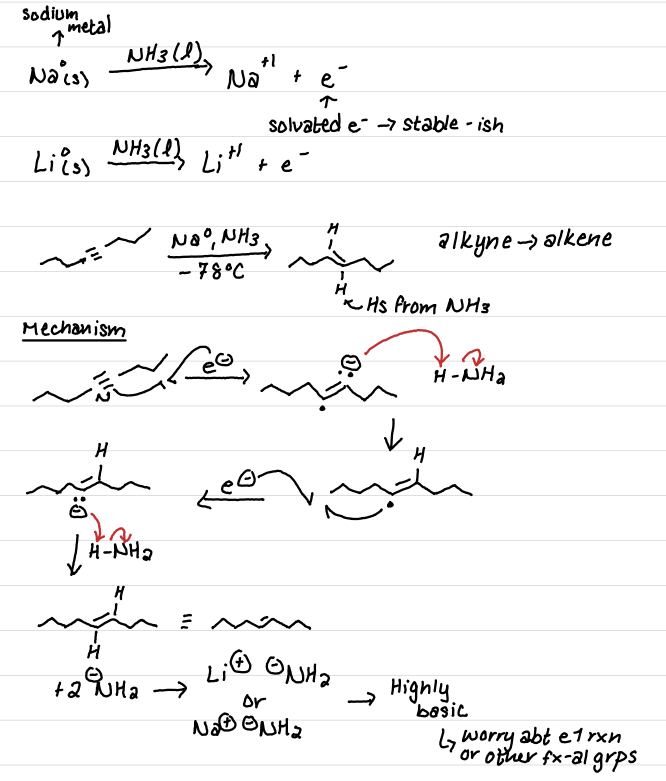 sodium metal
Na°(s) NH3(l) → Na+1 + e-
solvated e- → stable-ish
Li°(s) NH3(l) → Li+1 + e-
Na°, NH3
-78°C
H
H
alkyne → alkene
Hs from NH3
Mechanism
e⊖
⊖
H-NH2
H
H
e⊖
⊖
H-NH2
H
≡
H
+2 ⊖NH2 → Li⊕ ⊖NH2
or
Na⊕ ⊖NH2
→ Highly basic
↳ worry abt e1 rxn
or other fx-al grps